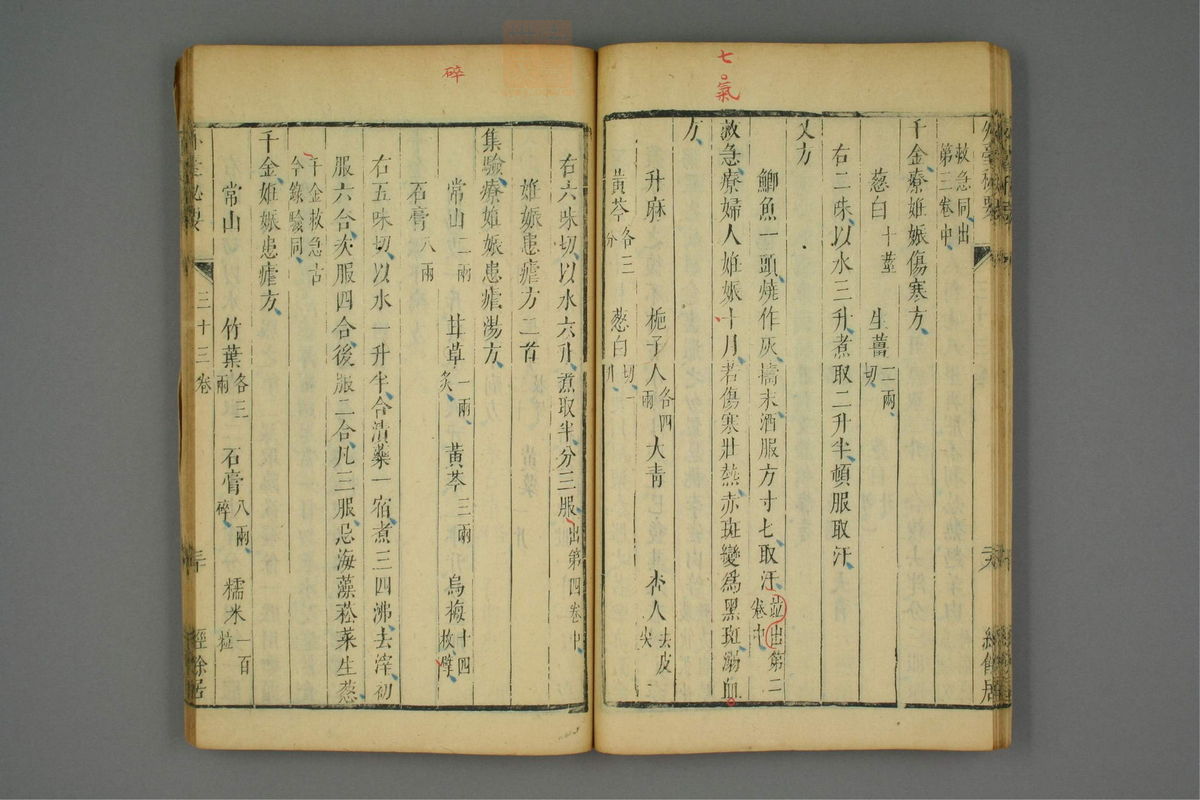 七氣
救急同出
第三卷中
千金療姙娠傷寒方
葱白十莖 生薑二兩切
右二味以水三升煮取二升半頓服取汗
又方
鯽魚一頭燒作灰擣末酒服方寸七取汗並出第二卷中
救急療婦人姙娠十月若傷寒壯熱赤斑變爲黑斑溺血
方
升麻 梔子人各四兩 大青 杏人去皮尖
黃芩各三分 葱白切一升
碎
右六味切以水六升煮取半分三服出第四卷中
姙娠患瘧方二首
集驗療姙娠患瘧湯方
常山二兩 甘草一兩炙 黃芩三兩 烏梅十四枚碎
石膏八兩
右五味切以水一升半合漬藥一宿煮三四沸去滓初
服六合次服四合後服二合凡三服忌海藻菘菜生葱
千金救急古
今錄驗同
千金姙娠患瘧方
常山 竹葉各三兩 石膏八兩碎 糯米一百粒
三十三卷
經餘居